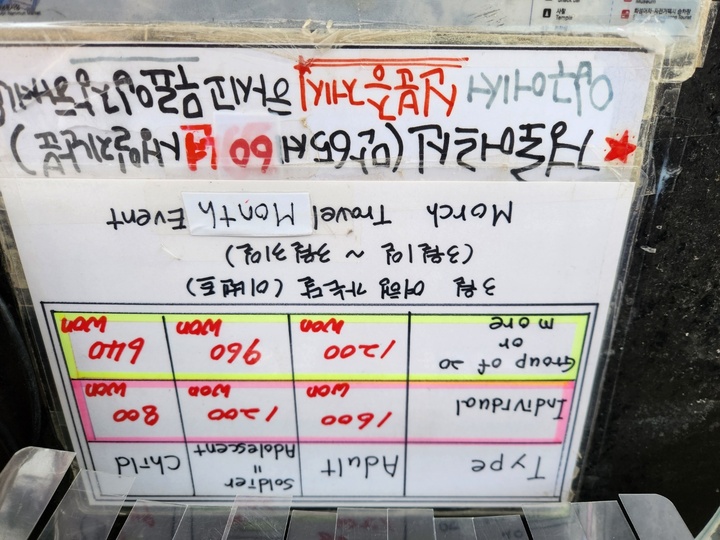 Type Adult Soldier = Adolescent Child
Individual 1600 won 1200 won 800 won
Group of 20 or more 1200 won 960 won 640 won
3월 여행 가는달 (이벤트)
(3월1일 ~ 3월31일)
Morch Travel Month Event
★ 경로어르신 (만65세 60년 생일지난분)
입구에서 신분증제시 하시고 무료입장